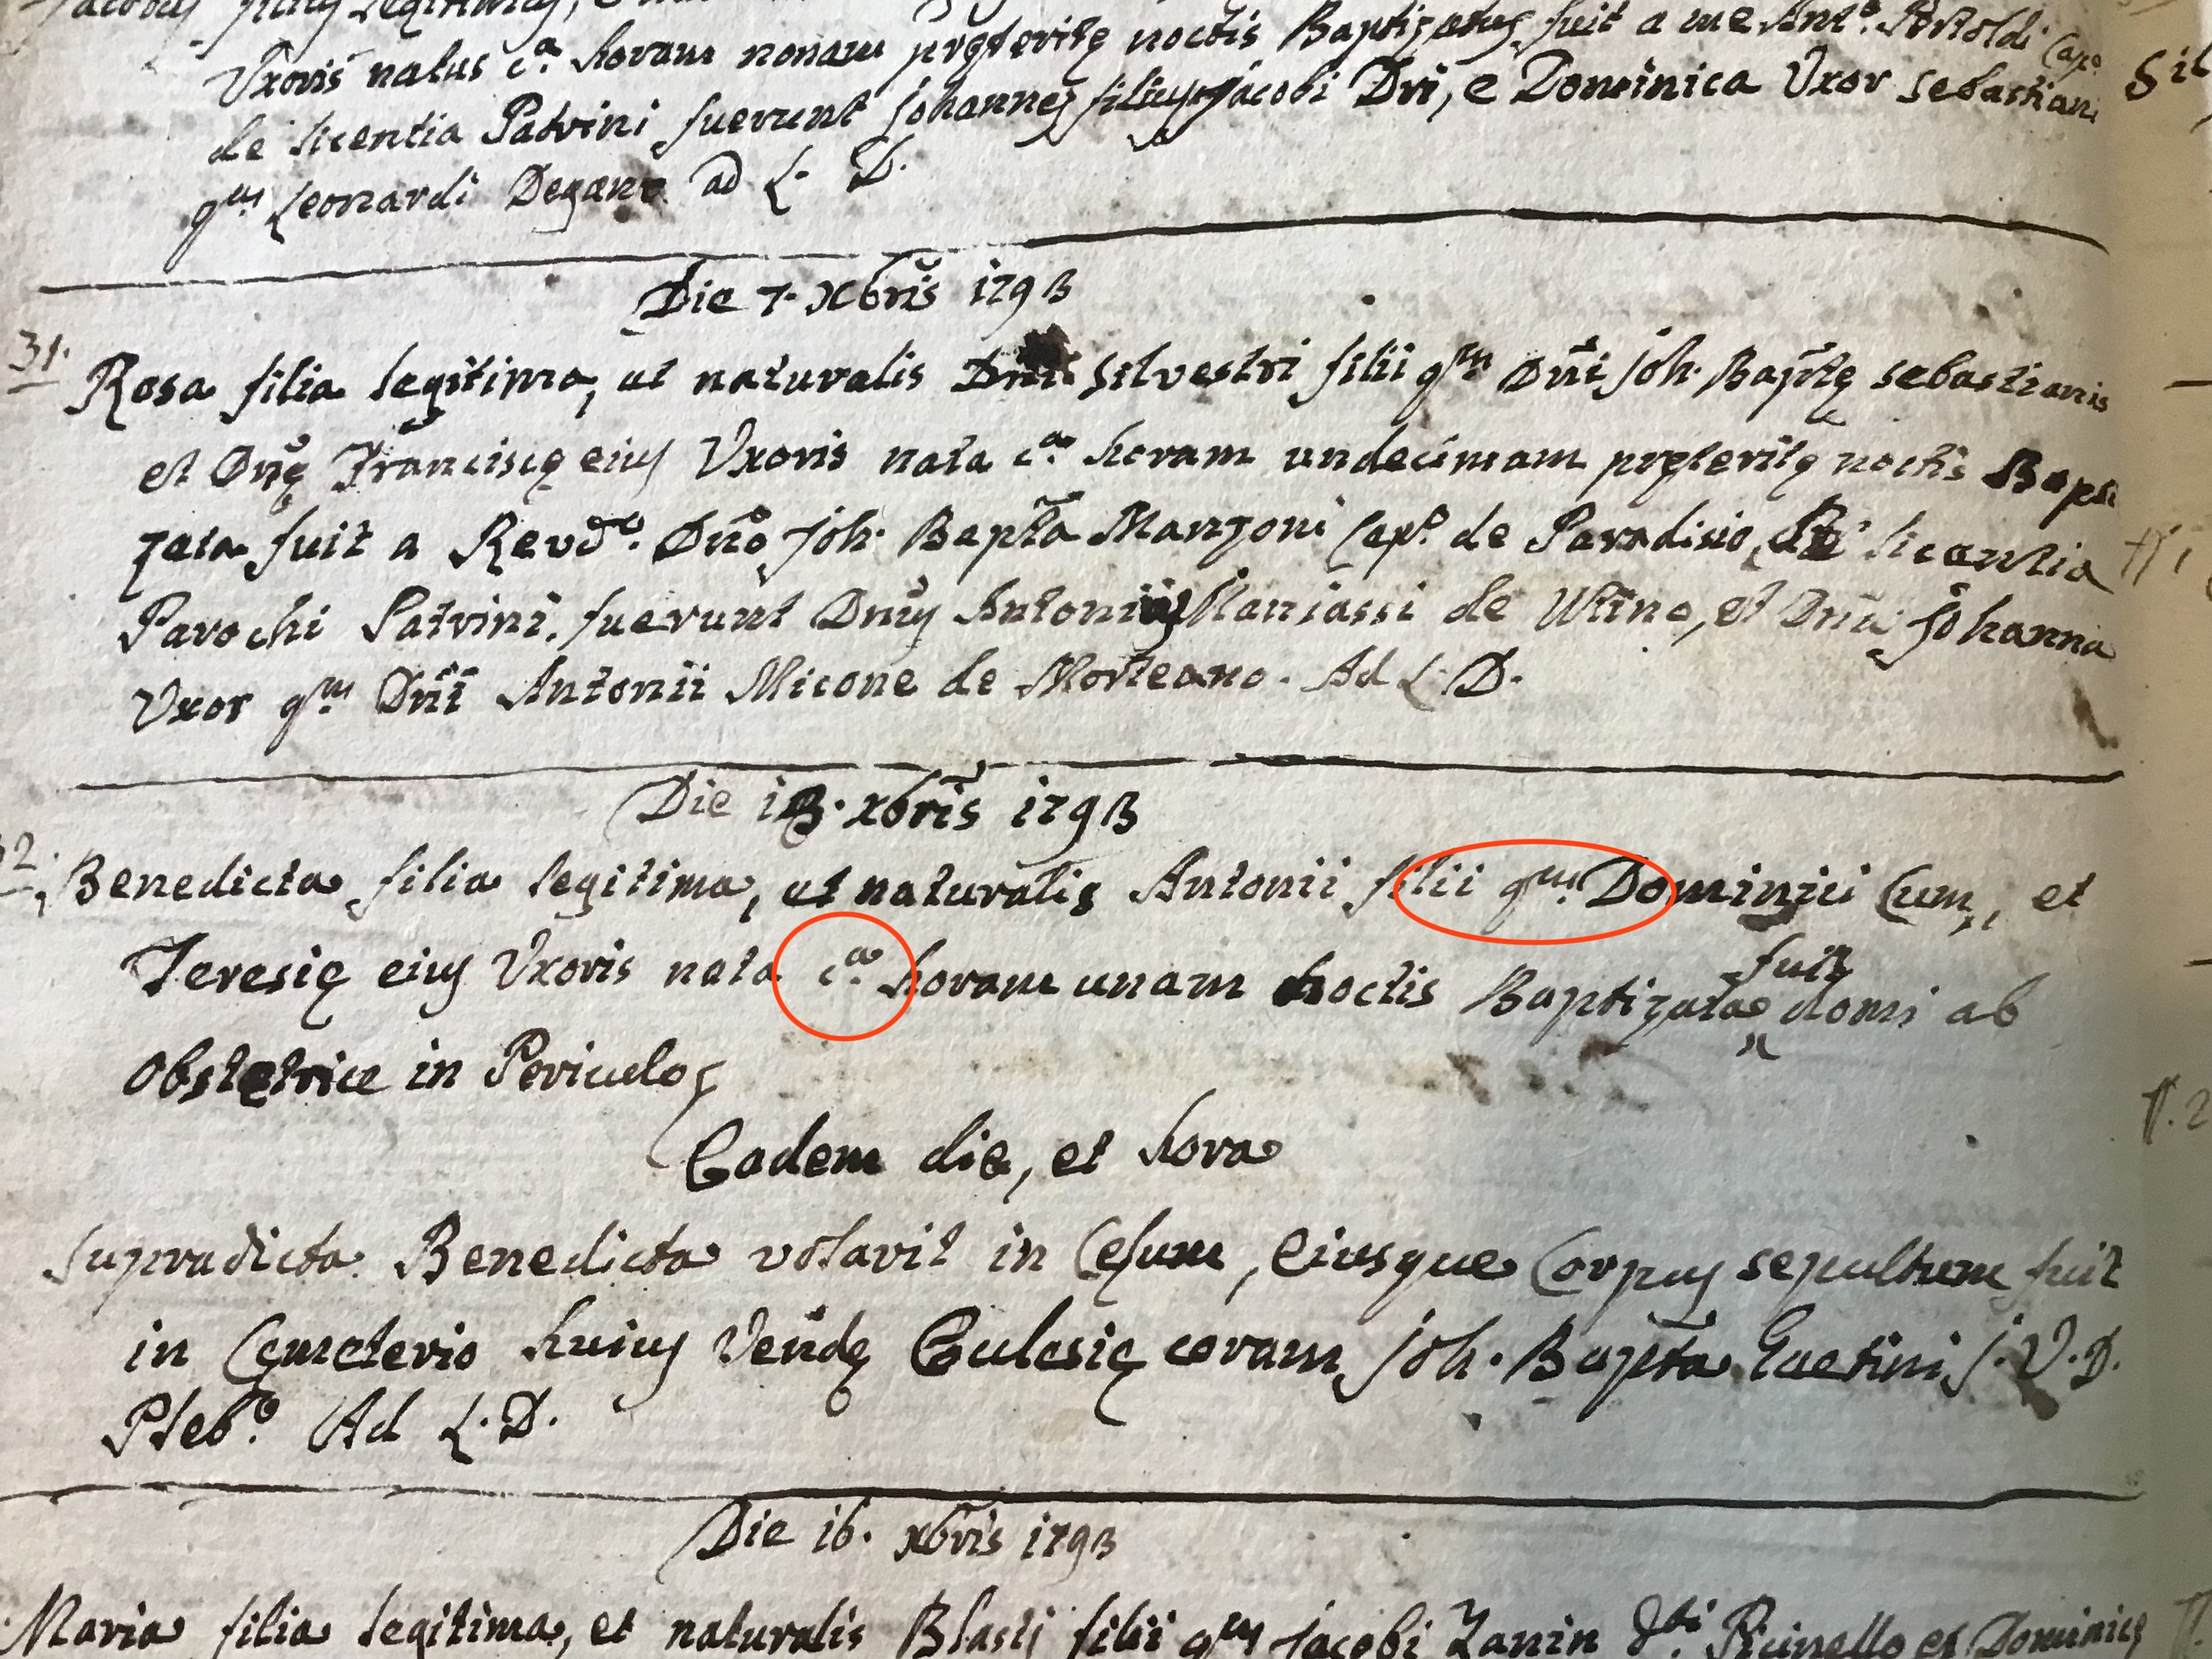 Uxoris natus c.ª horam nonam pręteritę noctis Baptizatus fuit a me Ant.º Capº
de licentia Patrini fuerunt Johannes filius Jacobi Dri, e Dominica Uxor Sebastiani
qm Leonardi Degano ad L. D.
Die 7. Xbris 1793
31. Rosa filia legitima, et naturalis Dni Silvestri filii qm Dni Joh. Baptę Sebastianis
et Dnę Franciscę eius Uxoris nata c.ª horam undecimam pręteritę noctis Bapti
zata fuit a Revdo. Dno Joh. Bapta Manzoni Cap.º de Paradisio, de licentia
Parochi Patrini, fuerunt Dnus Antonius de Utino, et Dna Johanna
Uxor qm Dni Antonii Micone de Morteano. Ad L. D.
Die 13. xbris 1793
Benedicta filia legitima, et naturalis Antonii filii qm Dominici Cum, et
Teresię eius Uxoris nata c.ª horam unam noctis Baptizata fuit domi ab
Obstetrice in Periculo
Eadem die, et hora
Supradicta Benedicta volavit in Celum, Eiusque Corpus sepultum fuit
in Cęmeterio huius Vendę Eclesię coram Joh. Bapta Gaetini J. V. D.
Pleb.º Ad L. D.
Die 16. xbris 1793
Maria filia legitima, et naturalis Blasij filii qm Jacobi Zanin dti et Dominicę